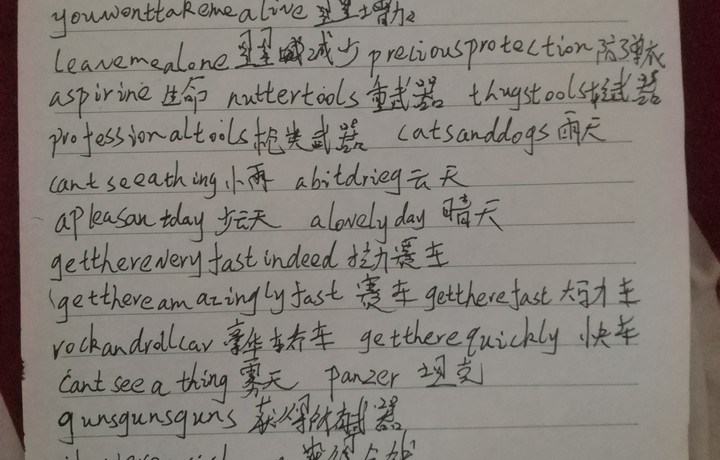 youwonttakemealive 星星增加
leavemealone 星星减少 preciousprotection 防弹衣
aspirine 生命 nuttertools 重武器 thugstools 武器
professionaltools 枪类武器 catsanddogs 雨天
cantseeathing 小雨 abitdrieg 云天
apleasantday 云天 alovelyday 晴天
gettherevery fastindeed 赛车
gettheream azinglyfast 赛车 gettherefast 车
rockandrollcar 豪华轿车 getherequickly 快车
cantsee a thing 雾天 panzer 坦克
gunsgunsguns 获得所有武器